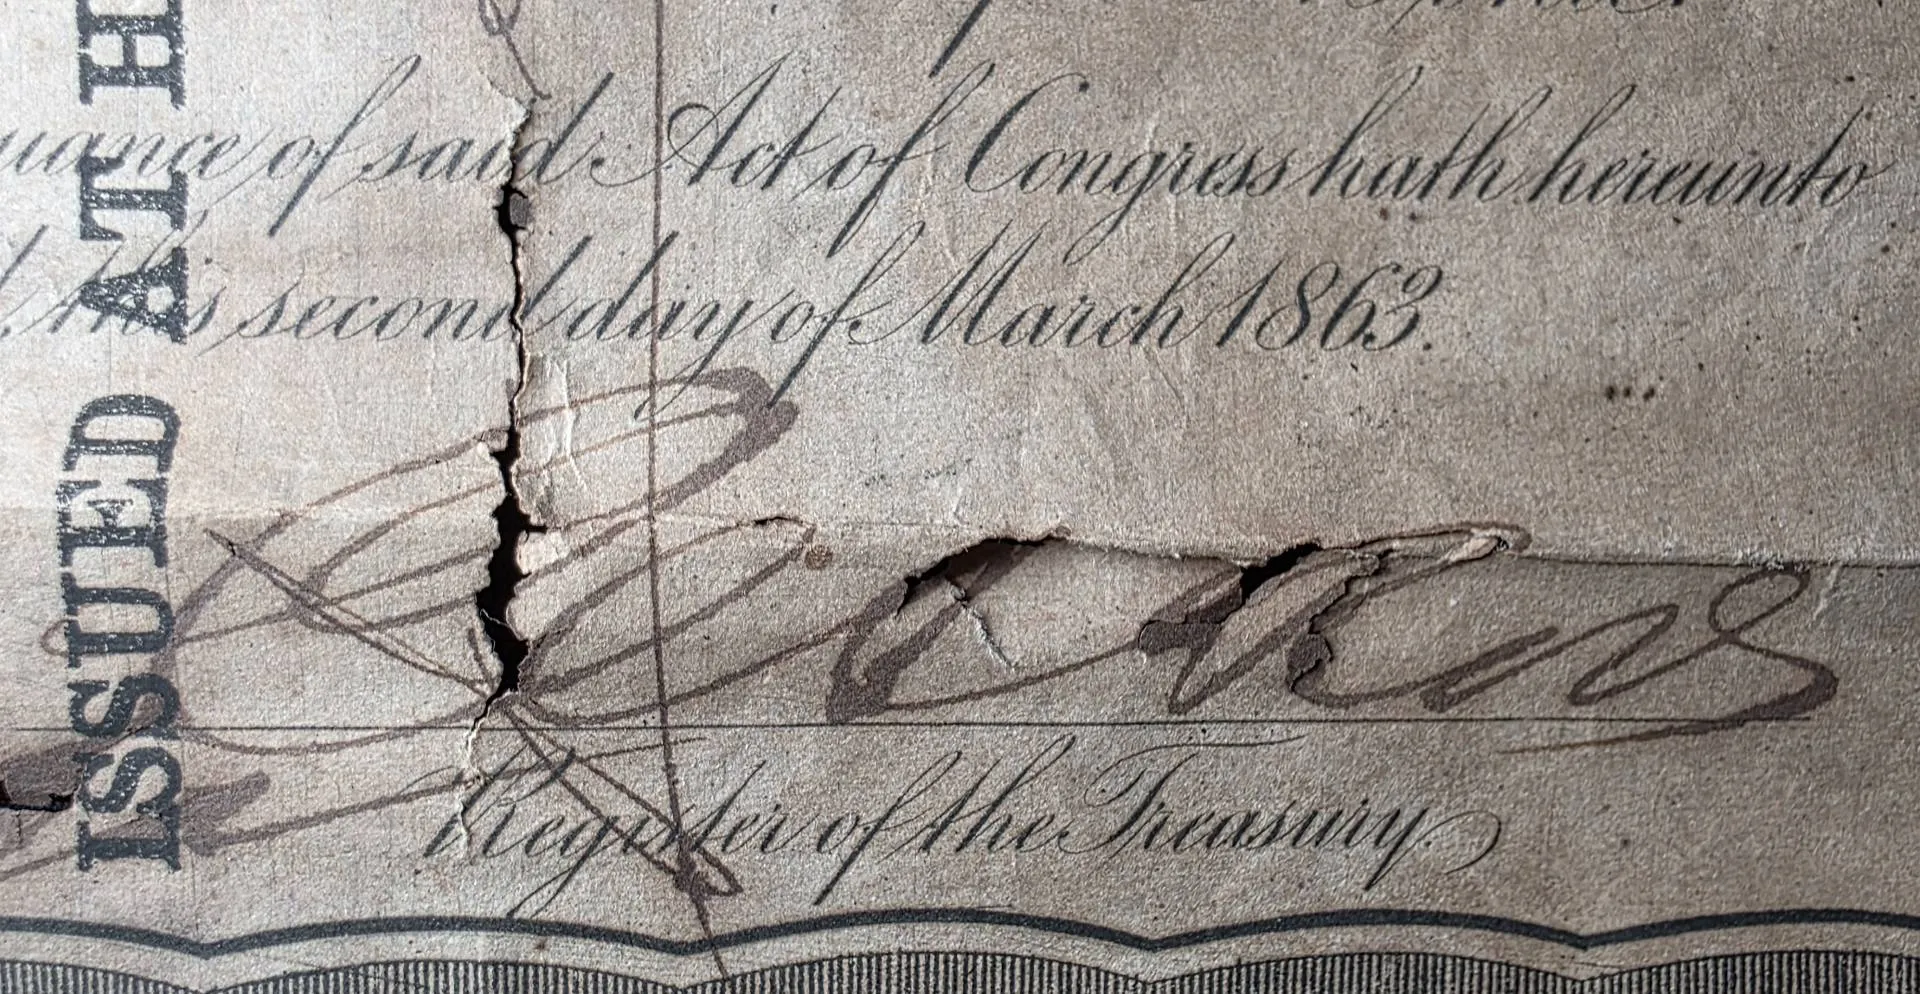 uance of said Act of Congress hath hereunto
this second day of March 1863.
Register of the Treasury.
ISSUED AT